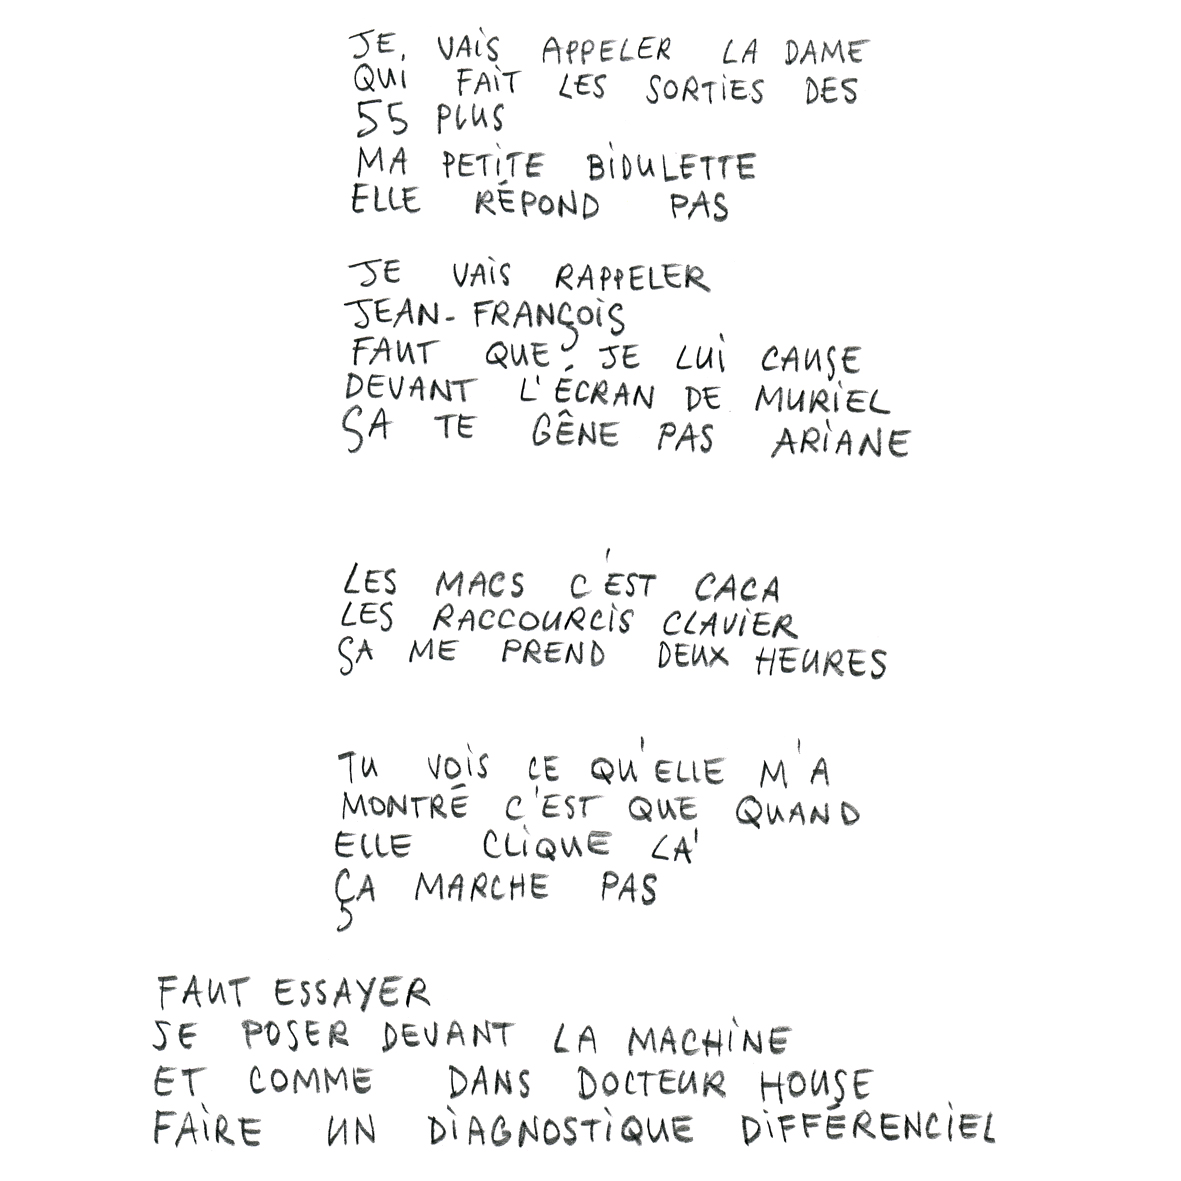 JE, VAIS APPELER LA DAME
QUI FAIT LES SORTIES DES
55 PLUS
MA PETITE BIDULETTE
ELLE RÉPOND PAS
JE VAIS RAPPELER
JEAN-FRANÇOIS
FAUT QUE JE LUI CAUSE
DEVANT L'ÉCRAN DE MURIEL
ÇA TE GÊNE PAS ARIANE
LES MACS C'EST CACA
LES RACCOURCIS CLAVIER
ÇA ME PREND DEUX HEURES
TU VOIS CE QU'ELLE M'A
MONTRÉ C'EST QUE QUAND
ELLE CLIQUE LÀ
ÇA MARCHE PAS
FAUT ESSAYER
SE POSER DEVANT LA MACHINE
ET COMME DANS DOCTEUR HOUSE
FAIRE UN DIAGNOSTIQUE DIFFÉRENCIEL